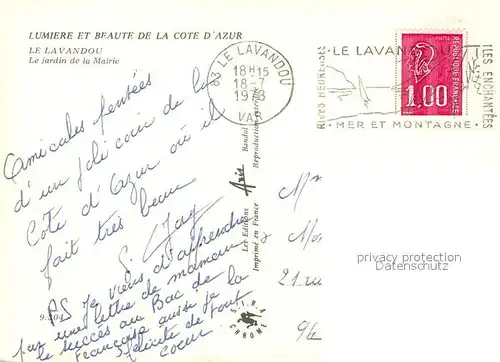 LUMIERE ET BEAUTE DE LA COTE D'AZUR
LE LAVANDOU
Le jardin de la Mairie
83 LE LAVANDOU
18H15
18-7
1978
VAR
RIVES HEUREUSES
LE LAVANDOU
ILES ENCHANTÉES
MER ET MONTAGNE
POSTES
REPUBLIQUE FRANÇAISE
1,00
Amicales pensées
d'un joli coin de la
Côte d'Azur où il
fait très beau
PS Je viens d'apprendre
par une lettre de maman
le succès au Bac de
Françoise aussi je la
félicite de tout
coeur
Les Editions Aris Bandol
Imprimé en France Reproduction interdite
S.I.R.A.
CHROME
21 rue
privacy protection
Datenschutz